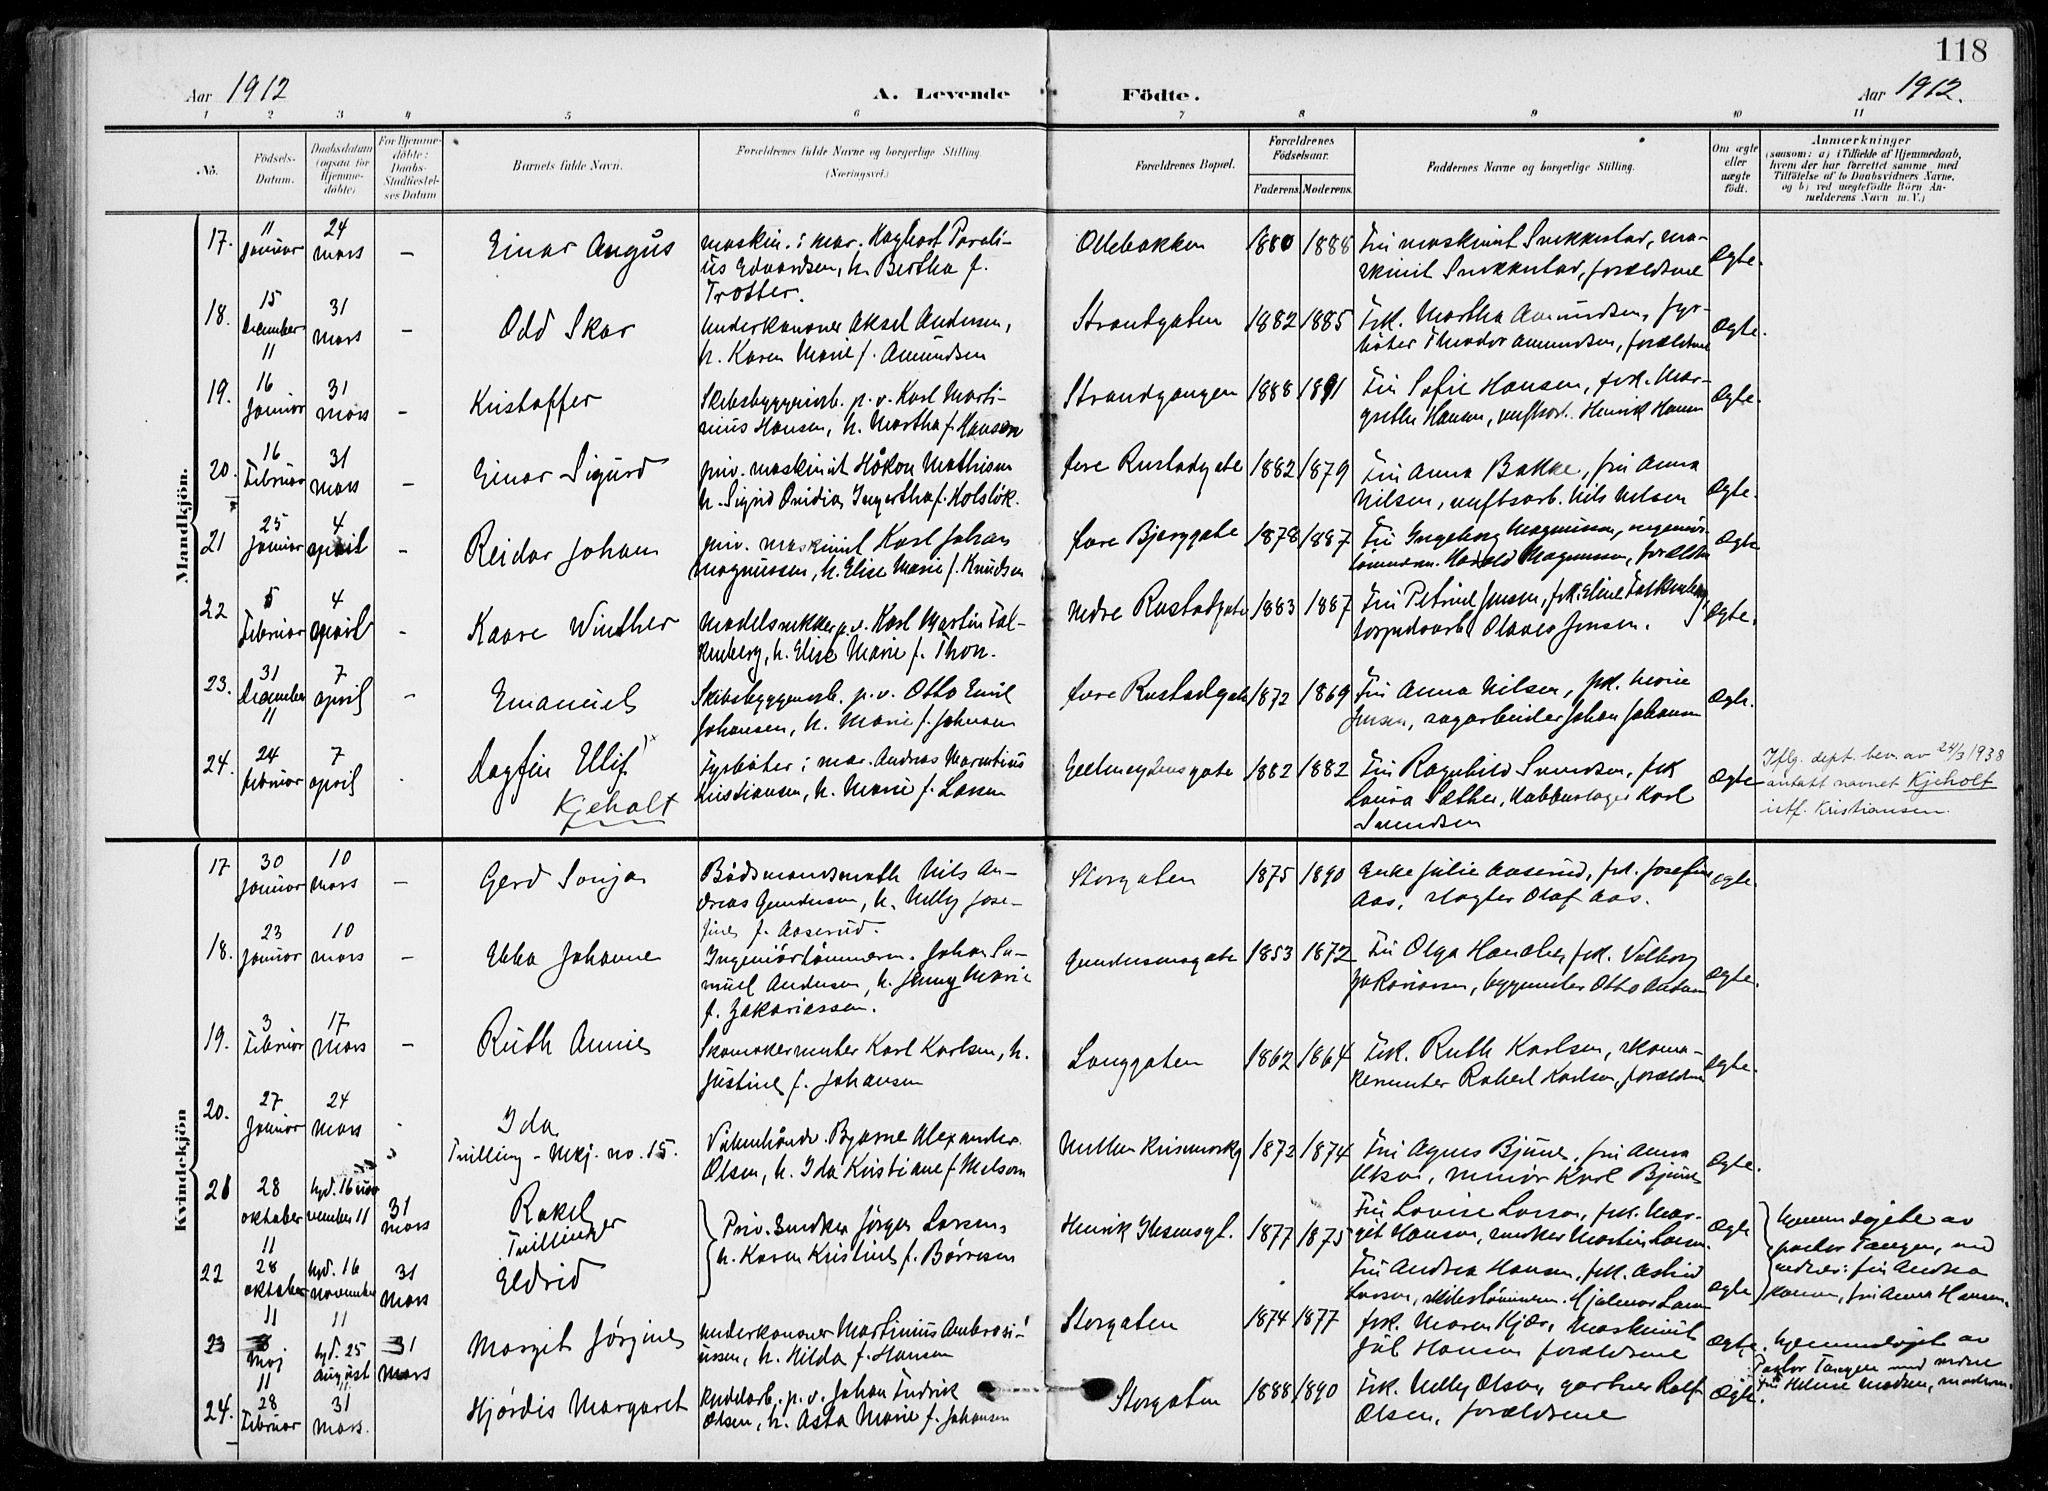 118
Aar 1912
A. Levende Födte.
Aar 1912.
1 2 3 4 5 6 7 8 9 10 11
No.
Födsels-Datum.
Daabsdatum (ogsaa for Hjemmedöbte)
For Hjemmedöbte: Daabs-Stadfæstelses Datum
Barnets fulde Navn.
Forældrenes fulde Navne og borgerlige Stilling. (Næringsvei.)
Forældrenes Bopæl.
Forældrenes Födselsaar.
Faderens. Moderens.
Faddernes Navne og borgerlige Stilling.
Om ægte eller uægte födt.
Anmærkninger
(saasom: a) i Tilfælde af Hjemmedaab,
hvem der har forrettet samme med
Tilföielse af to Daabsvidners Navne.
og b) ved uægtefödte Börn An-
melderens Navn m. V.)
Mandkjön.
17. 11 januar 24 mars — Einar Angus
maskin. i mar. Hagbart Parali-
us Edvardsen, h. Bertha f.
Trotter.
Ollebakken 1880 1888
Fru maskinist Snekkestad, ma-
skinist Snekkestad, forældrene
Ægte.
18. 15 december 11 31 mars — Odd Skar
Underkanoner Aksel Andersen,
h. Karen Marie f. Amundsen
Strandgaten 1882 1885
Frk. Martha Amundsen, fyr-
bøter Theodor Amundsen, forældrene
Ægte.
19. 16 januar 31 mars — Kristoffer
Skibsbyggerarb. p. v. Karl Marti-
nius Hansen, h. Martha f. Hansen
Strandgangen 1888 1891
Fru Sofie Hansen, frk. Mar-
grethe Hansen, verftsarb. Henrik Hansen
Ægte.
20. 16 Februar 31 mars — Einar Sigurd
priv. maskinist Håkon Mathisen
h. Sigrid Ovidia Ingertha f. Holsløk.
Øvre Rustadgate 1882 1879
Fru Anna Bakke, fru Anna
Nilsen, verftsarb. Nils Nilsen
Ægte.
21 25 januar 4 april — Reidar Johan
priv. maskinist Karl Johan
Magnussen, h. Elise Marie f. Knudsen
Øvre Bjerggate 1878 1887
Fru Ingeborg Magnussen,
Harald Magnussen, forældrene
Ægte
22 5 Februar 4 april - Kaare Winther
Modelsnekker p. v. Karl Martin Fal-
kenberg, h. Elise Marie f. Thon.
Nedre Rustadgate 1883 1887
Fru Petrine Jensen, frk. Eline Falkenberg,
torpedoarb. Olaves Jensen.
Ægte.
23. 31 December 11 7 april - Emanuel
Skibsbyggerarb. p. v. Otto Emil
Johansen, h. Marie f. Johnsen
Øvre Rustadgate 1872 1869
Fru Anna Nilsen, frk. Marie
Jensen, sagarbeider Johan Johansen
Ægte.
24. 24 februar 7 april . Dagfin Ellif
Kjeholt
Fyrbøter i mar. Andreas Marentius
Kristiansen, h. Marie f. Larsen
Geelmeydensgate 1882 1882
Fru Ragnhild Svendsen, frk
Laura Sæther, Karl
Svendsen
Ægte
Iflg. dept. bev. av 24/3 1938
antatt navnet Kjeholt
istf. Kristiansen.
Kvindekjön
17 30 januar 10 mars — Gerd Sonja
Bådsmandsmath Nils An-
dreas Gundersen, h. Nelly Jose-
fine f. Aaserud.
Storgaten 1875 1890
Enke Julie Aaserud, frk. Josefine
Aas, slagter Olaf Aas.
ægte.
18. 23 januar 10 mars — Ebba Johanne
Ingeniørtømmerm. Johan Sa-
muel Andersen, h. Jenny Marie
f. Zakariassen.
Gundersensgate 1853 1872
Fru Olga Handby, frk. Valborg
Zakariassen, byggmester Otto
Ægte.
19. 3 Februar 17 mars — Ruth Annie
Skomakermester Karl Karlsen, h.
Justine f. Johansen
Langgaten 1862 1864
Frk. Ruth Karlsen, skoma-
kermester Robert Karlsen, forældrene
Ægte.
20. 27 januar 24 mars . Ida
Tvilling - Mkj. no. 15.
Bjarne Alexander
Olsen, h. Ida Kristiane f. Melsom
1872 1874
Fru Agnes Bjune, fru Anna
Olsen, Karl Bjune
Ægte.
21 28 oktober 11 hjd. 16 november 11 31 mars Rakel
Tvillinger
Priv. Snedker Jørgen Larsen,
h. Karen Kristine f. Børresen
Henrik Ibsensgt. 1877 1875
Fru Lovise Larsen, frk. Mar-
git Hansen, snedker Martin Larsen.
Ægte
hjemmedøpte av
pastor Tangen, med
vidner: fru Andrea
Hansen, fru Anna Hansen.
22 28 oktober 11 hjd. 16 november 11 31 mars Eldrid
Fru Andrea Hansen, frk. Astrid
Larsen, skibstømmerm. Hjalmar Larsen
Ægte
23 8 Maj 11 hjd. 25 august 11 31 mars Margit Jørgine
Underkanoner Martinius Ambrosi-
ussen, h. Hilda f. Hansen
Storgaten 1874 1877
frk. Maren Kjær, Maskinist
Jul Hansen forældrene
Ægte.
hjemmedøpt av
Pastor Tangen med vidne
Fru Helene Madsen, moderen
24. 28 Februar 31 mars. Hjørdis Margaret
p. v. Johan Fredrik
Olsen, h. Asta Marie f. Johansen
Storgaten 1888 1890
Frk. Nelly Olsen, gartner Rolf
Olsen, forældrene
Ægte.